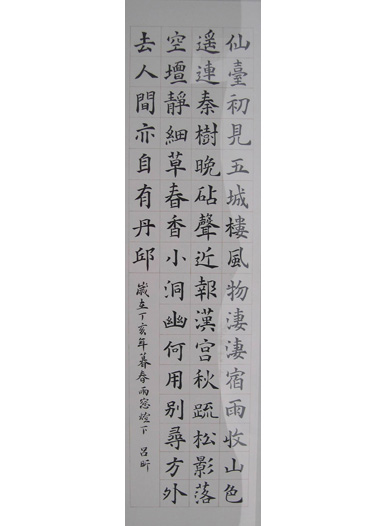 仙臺初見五城樓風物淒淒宿雨收山色
遙連秦樹晚砧聲近報漢宮秋疏松影落
空壇靜細草春香小洞幽何用別尋方外
去人間亦自有丹邱
歲在丁亥年暮春雨窓燈下 呂昕